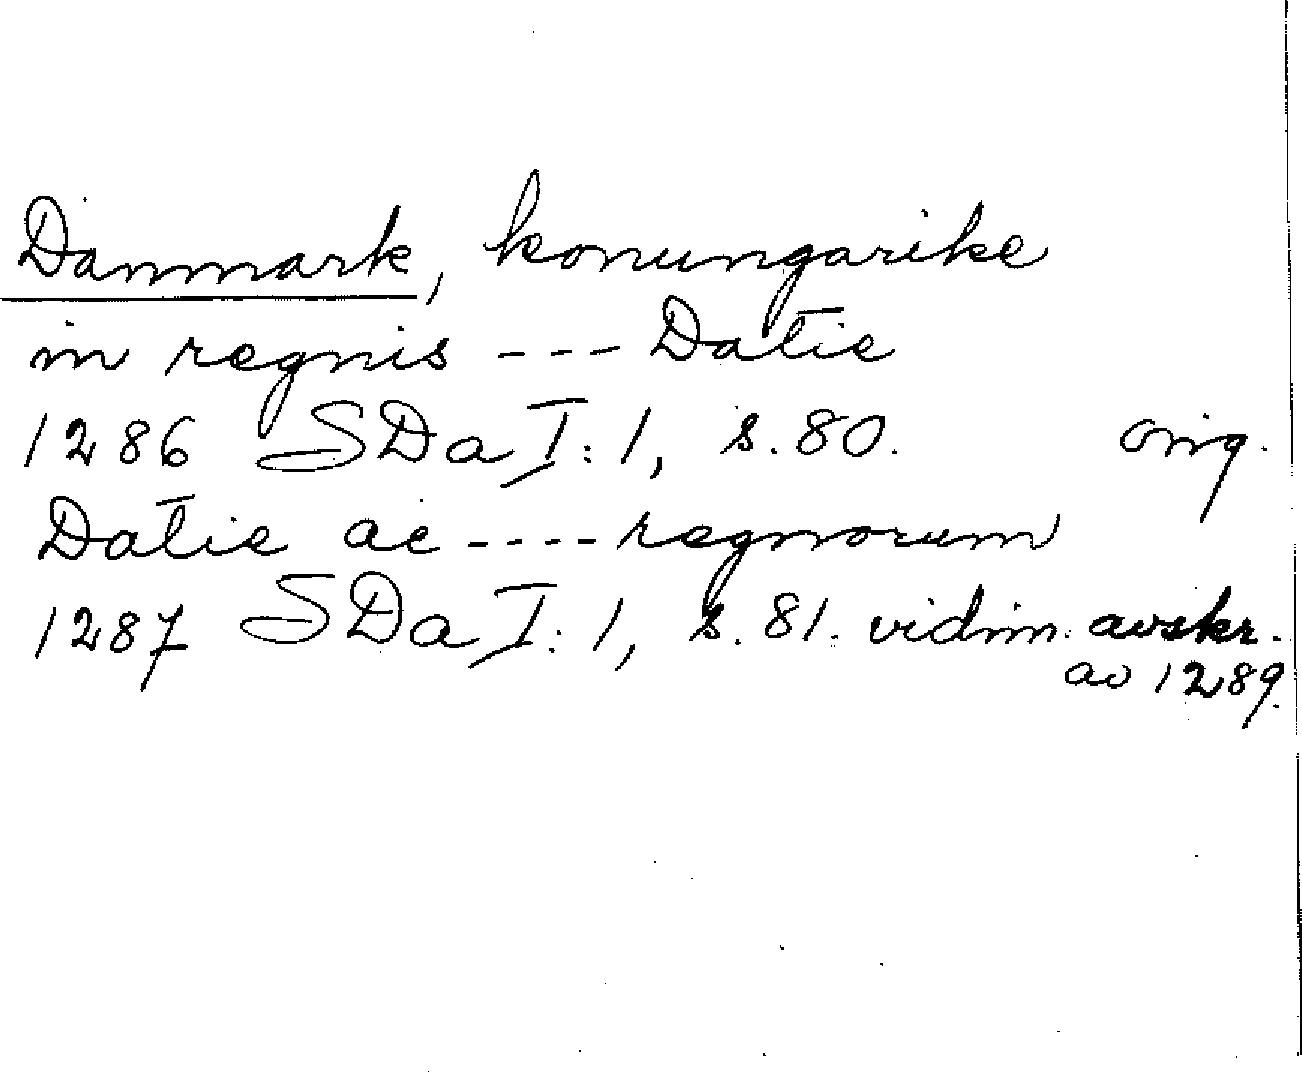 Danmark, konungarike
in regnis --- Datie
1286 SDa I:1, s.80. orig.
Datie ac ---- regnorum
1287 SDa I:1, s.81. vidim. avskr.
av 1289.